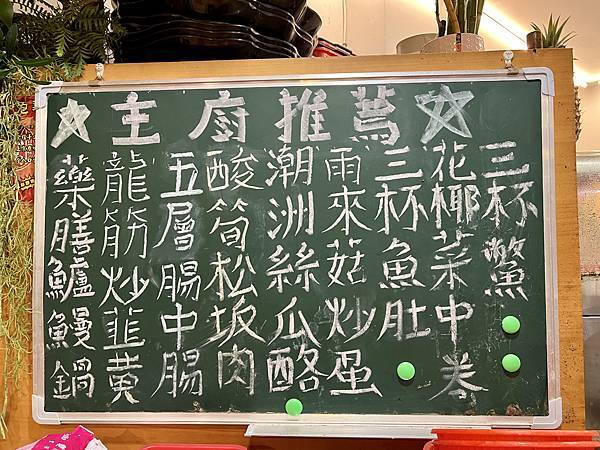 ☆主廚推薦☆
三杯鱉
花椰菜中卷
三杯魚肚
雨來菇炒蛋
潮洲絲瓜酪
酸筍松坂肉
五層腸中腸
龍筋炒韮黄
藥膳鱸鰻鍋